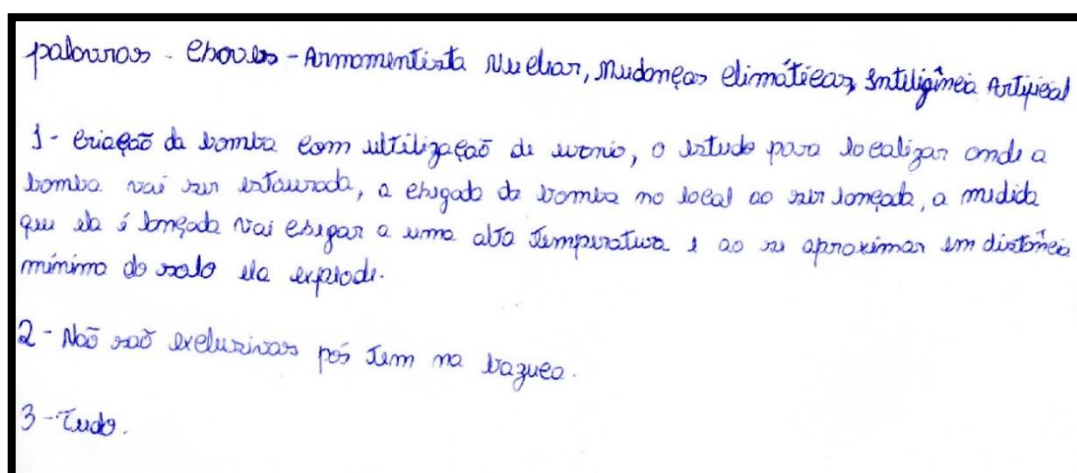 palavras - Chaves - Armamentista Nuclear, Mudanças climáticas, Inteligência Artificial
1 - criação da bomba com ultilização de uranio, o estudo para localizar onde a
bomba vai ser estourada, a chegada da bomba no local ao ser lançada, a medida
que ela é lançada vai chegar a uma alta temperatura e ao se aproximar em distância
mínima do solo ela explode.
2 - Não são exclusivas pós tem na
3 - Tudo.